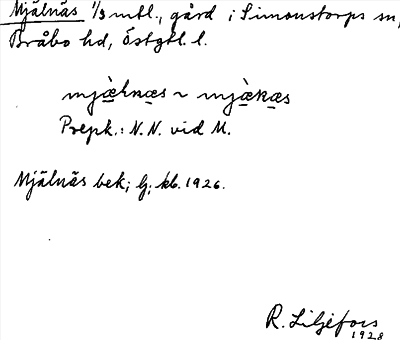 Mjälnäs 1/3 mtl., gård i Simonstorps sn,
Bråbo hd, Östgtl. l.
mjæ̀lnæs ~ mjæ̀næs
Prepk.: N.N. vid M.
Mjälnäs bek; lj. kb. 1926.
R. Liljefors
1928